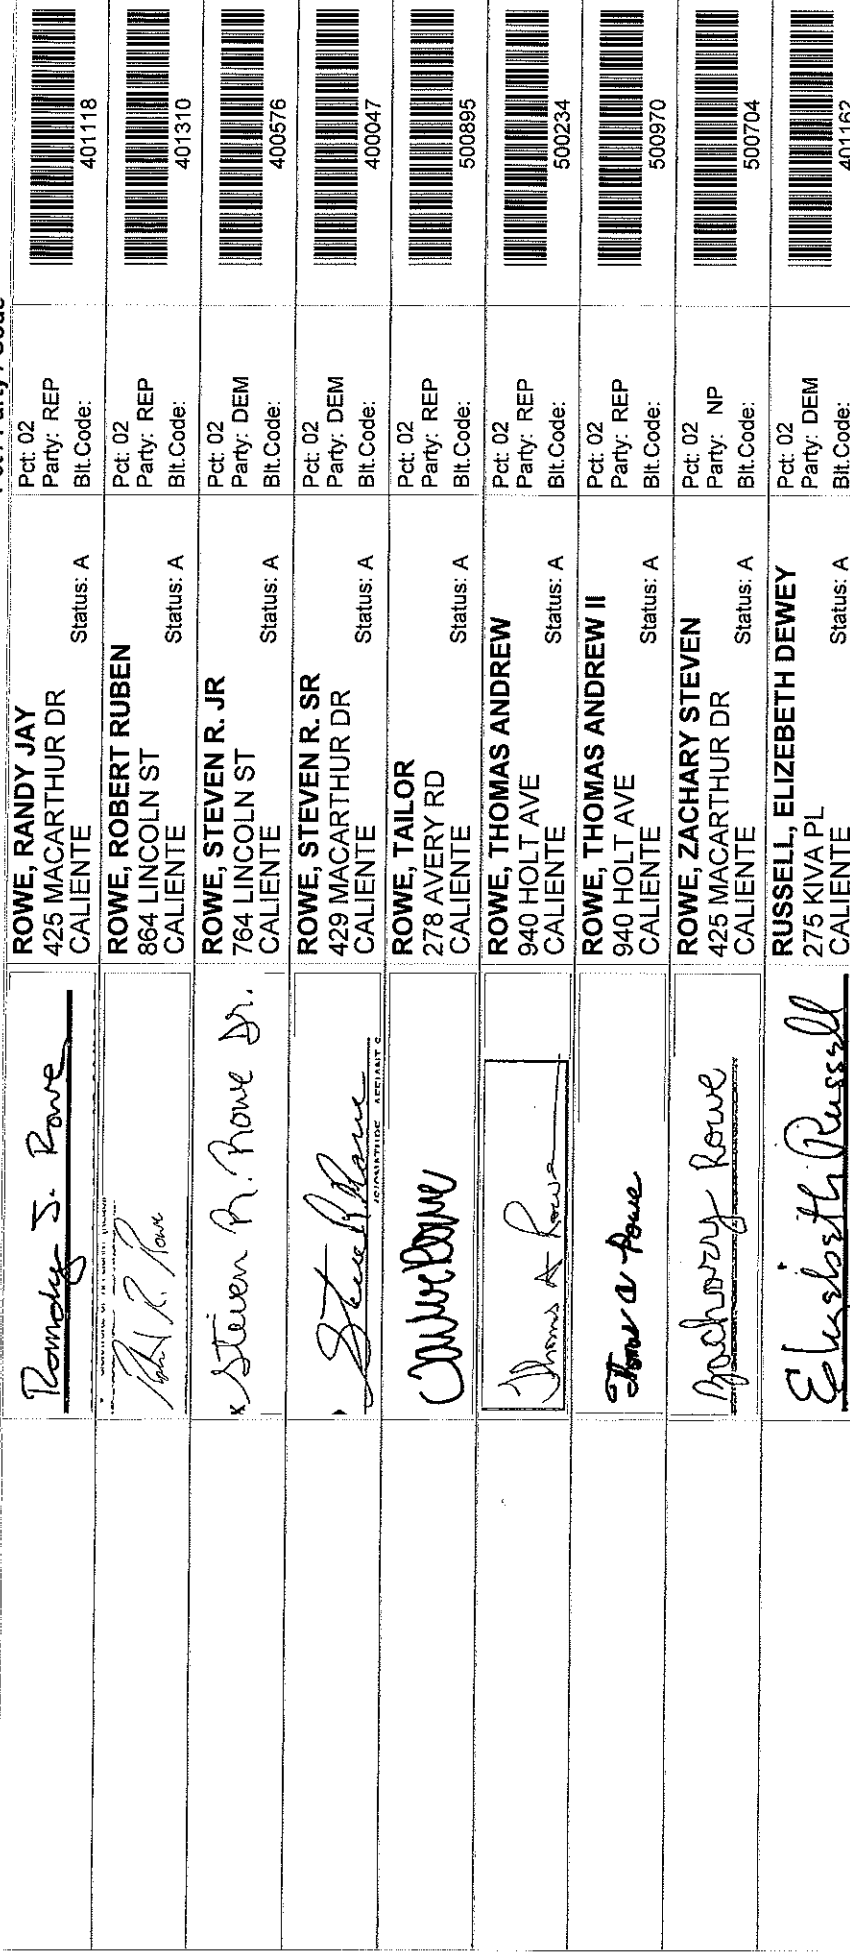 Pct / Party / Code
Randy J. Rowe
ROWE, RANDY JAY
425 MACARTHUR DR
CALIENTE
Status: A
Pct: 02
Party: REP
Blt.Code:
401118
Robert R. Rowe
ROWE, ROBERT RUBEN
864 LINCOLN ST
CALIENTE
Status: A
Pct: 02
Party: REP
Blt.Code:
401310
x Steven R. Rowe Jr.
ROWE, STEVEN R. JR
764 LINCOLN ST
CALIENTE
Status: A
Pct: 02
Party: DEM
Blt.Code:
400576
Steve R Rowe
ROWE, STEVEN R. SR
429 MACARTHUR DR
CALIENTE
Status: A
Pct: 02
Party: DEM
Blt.Code:
400047
Tailor Rowe
ROWE, TAILOR
278 AVERY RD
CALIENTE
Status: A
Pct: 02
Party: REP
Blt.Code:
500895
Thomas A Rowe
ROWE, THOMAS ANDREW
940 HOLT AVE
CALIENTE
Status: A
Pct: 02
Party: REP
Blt.Code:
500234
Thomas A Rowe
ROWE, THOMAS ANDREW II
940 HOLT AVE
CALIENTE
Status: A
Pct: 02
Party: REP
Blt.Code:
500970
Zachary Rowe
ROWE, ZACHARY STEVEN
425 MACARTHUR DR
CALIENTE
Status: A
Pct: 02
Party: NP
Blt.Code:
500704
Elizabeth Russell
RUSSELL, ELIZEBETH DEWEY
275 KIVA PL
CALIENTE
Status: A
Pct: 02
Party: DEM
Blt.Code:
401162